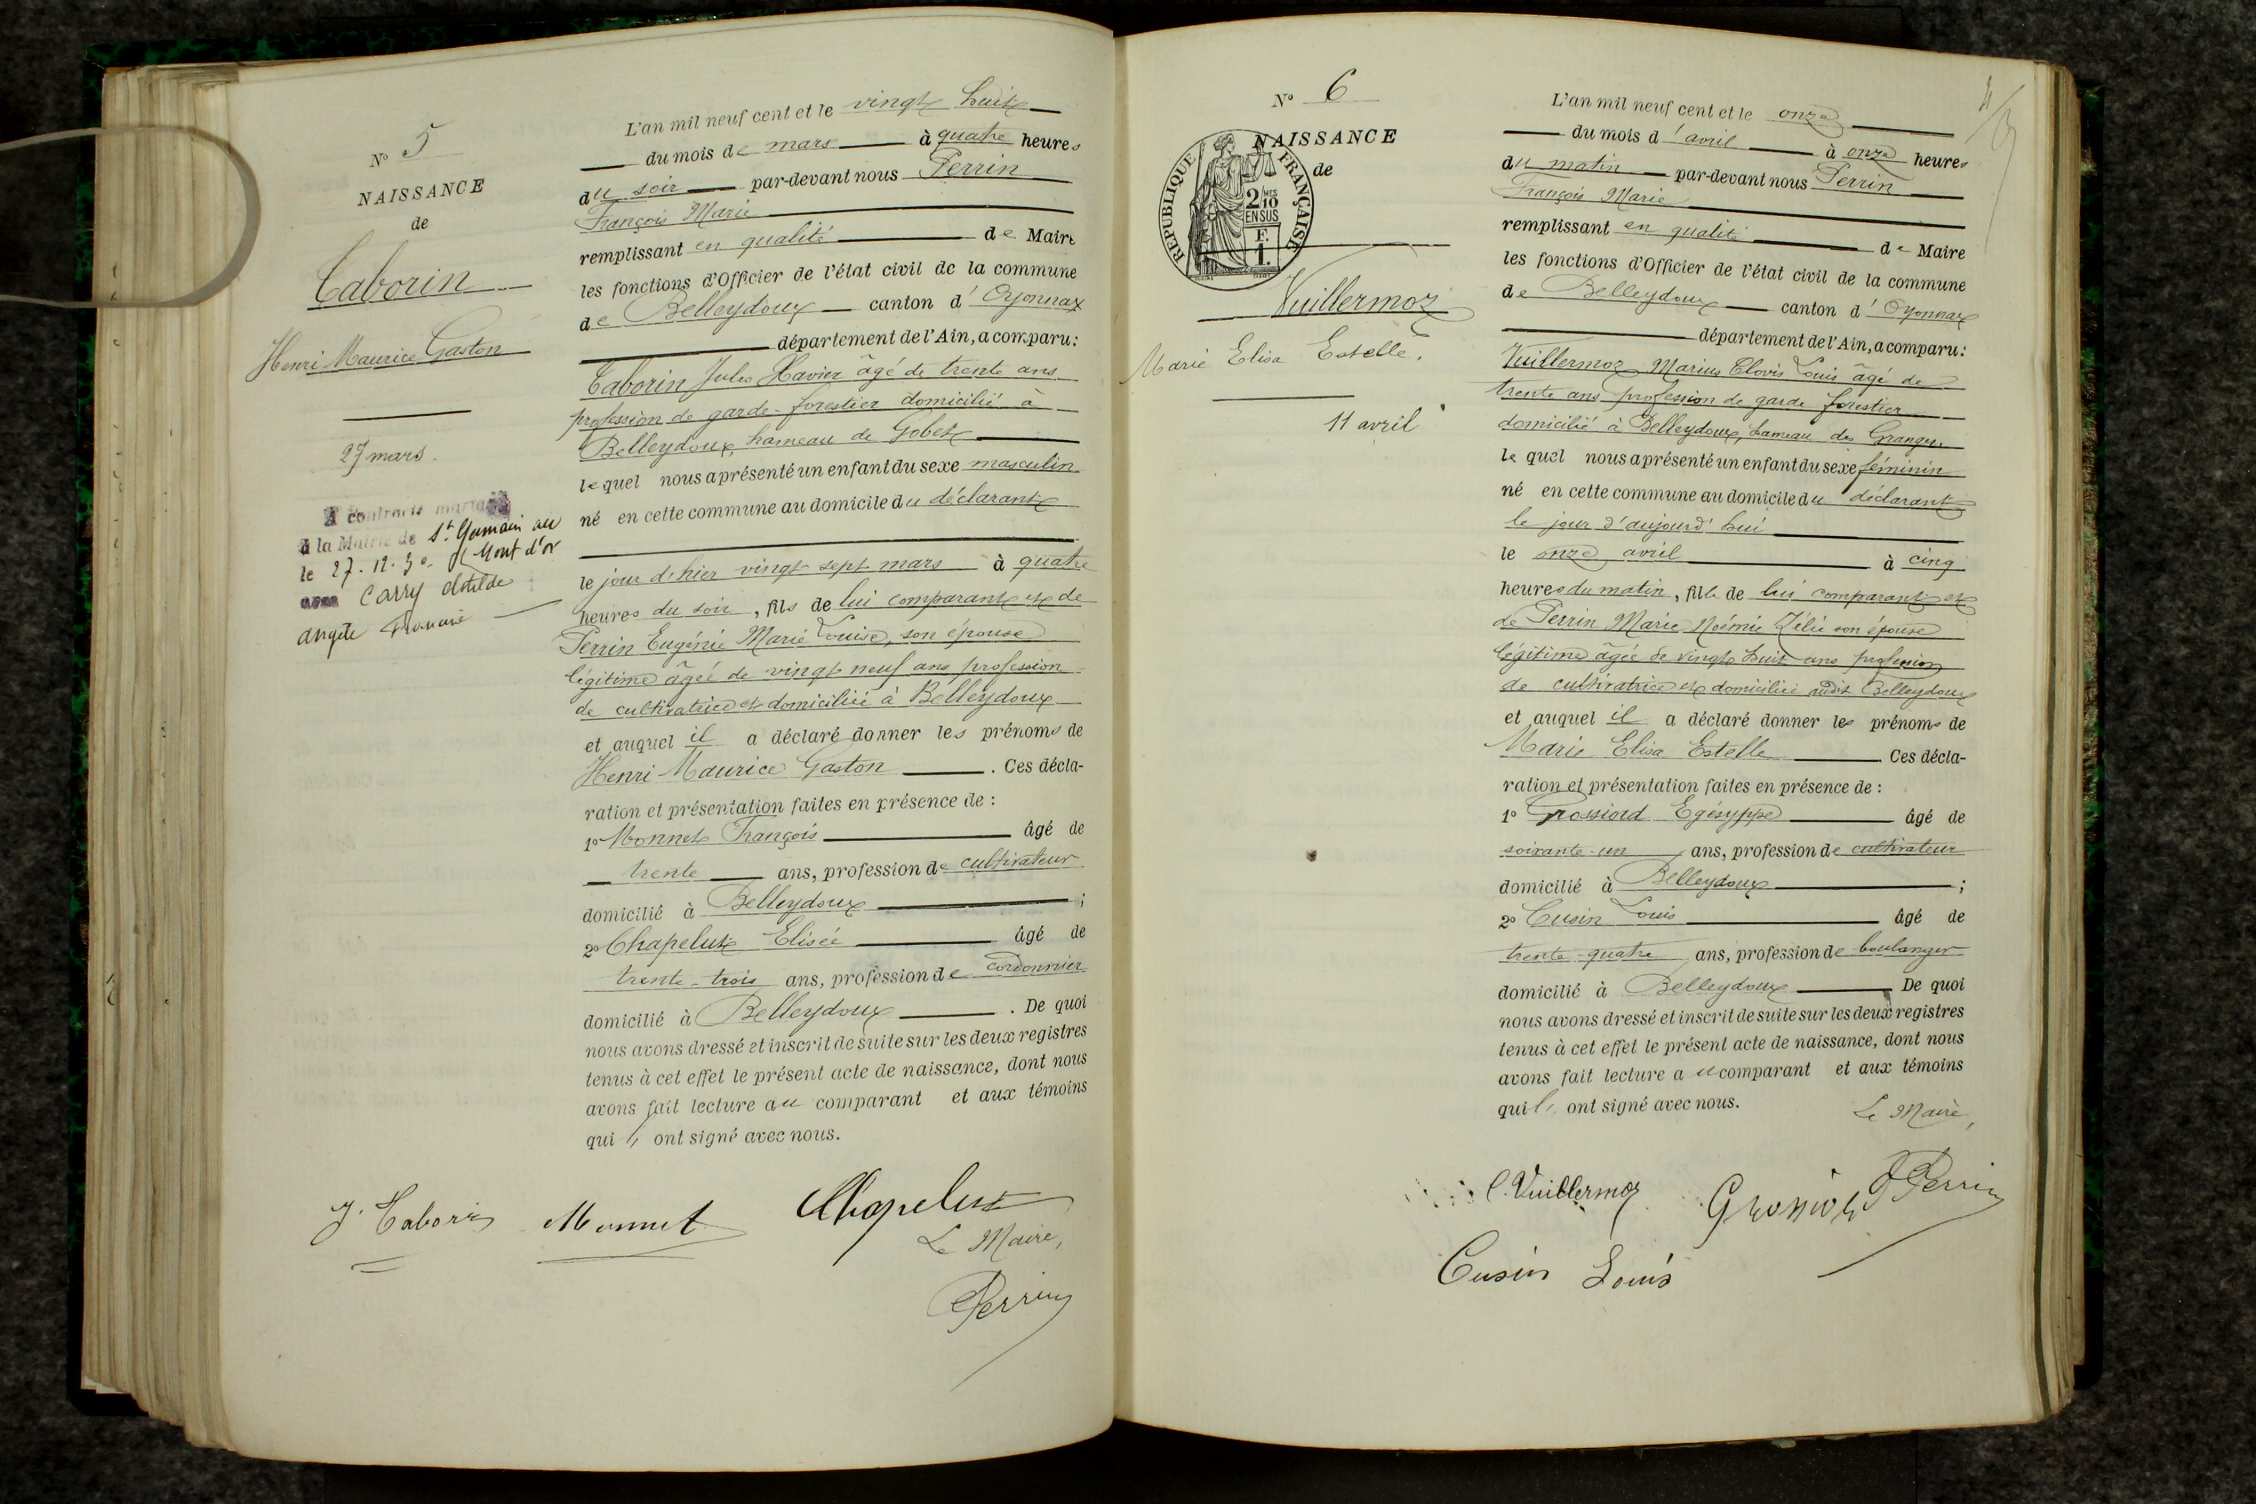 N° 5
NAISSANCE
de
Taborin
Henri Maurice Gaston
27 mars.
A contracté mariage
à la Mairie de St Germain au
Mont d'or
le 27.12.30
avec Carry Clotilde
angèle
L'an mil neuf cent et le vingt huit
du mois de mars à quatre heures
du soir par-devant nous Perrin
François Marie
remplissant en qualité de Maire
les fonctions d'Officier de l'état civil de la commune
de Belleydoux canton d'Oyonnax
département de l'Ain, a comparu:
Taborin Jules Xavier âgé de trente ans
profession de garde-forestier domicilié à
Belleydoux, hameau de Gobet
lequel nous a présenté un enfant du sexe masculin
né en cette commune au domicile du déclarant
le jour d'hier vingt sept mars à quatre
heures du soir, fils de lui comparant et de
Perrin Eugénie Marie Louise, son épouse
légitime âgée de vingt neuf ans profession
de cultivatrice et domiciliée à Belleydoux
et auquel il a déclaré donner les prénoms de
Henri Maurice Gaston . Ces décla-
ration et présentation faites en présence de :
1° Monnet François âgé de
trente ans, profession de cultivateur
domicilié à Belleydoux ;
2° Chapelut Elisée âgé de
trente-trois ans, profession de cordonnier
domicilié à Belleydoux . De quoi
nous avons dressé et inscrit de suite sur les deux registres
tenus à cet effet le présent acte de naissance, dont nous
avons fait lecture au comparant et aux témoins
qui ont signé avec nous.
J. Taborin Monnet Chapelut
Le Maire,
Perrin
N° 6
NAISSANCE
de
REPUBLIQUE FRANÇAISE
2/10 MES
EN SUS
F.
1.
Vuillermoz
Marie Elisa Estelle.
11 avril
L'an mil neuf cent et le onze
du mois d'avril à onze heures
du matin par-devant nous Perrin
François Marie
remplissant en qualité de Maire
les fonctions d'Officier de l'état civil de la commune
de Belleydoux canton d'Oyonnax
département de l'Ain, a comparu:
Vuillermoz Marius Clovis Louis âgé de
trente ans profession de garde forestier
domicilié à Belleydoux, hameau des Granges
lequel nous a présenté un enfant du sexe féminin
né en cette commune au domicile du déclarant
le jour d'aujourd'hui
le onze avril à cinq
heures du matin, fille de lui comparant et
de Perrin Marie Noémie Zélie son épouse
légitime âgée de vingt huit ans profession
de cultivatrice et domiciliée audit Belleydoux
et auquel il a déclaré donner les prénoms de
Marie Elisa Estelle Ces décla-
ration et présentation faites en présence de :
1° Grossiord Egésyppe âgé de
soixante-un ans, profession de cultivateur
domicilié à Belleydoux ;
2° Cusin Louis âgé de
trente-quatre ans, profession de boulanger
domicilié à Belleydoux De quoi
nous avons dressé et inscrit de suite sur les deux registres
tenus à cet effet le présent acte de naissance, dont nous
avons fait lecture au comparant et aux témoins
qui ont signé avec nous.
Le Maire,
C. Vuillermoz Grossiord Perrin
Cusin Louis